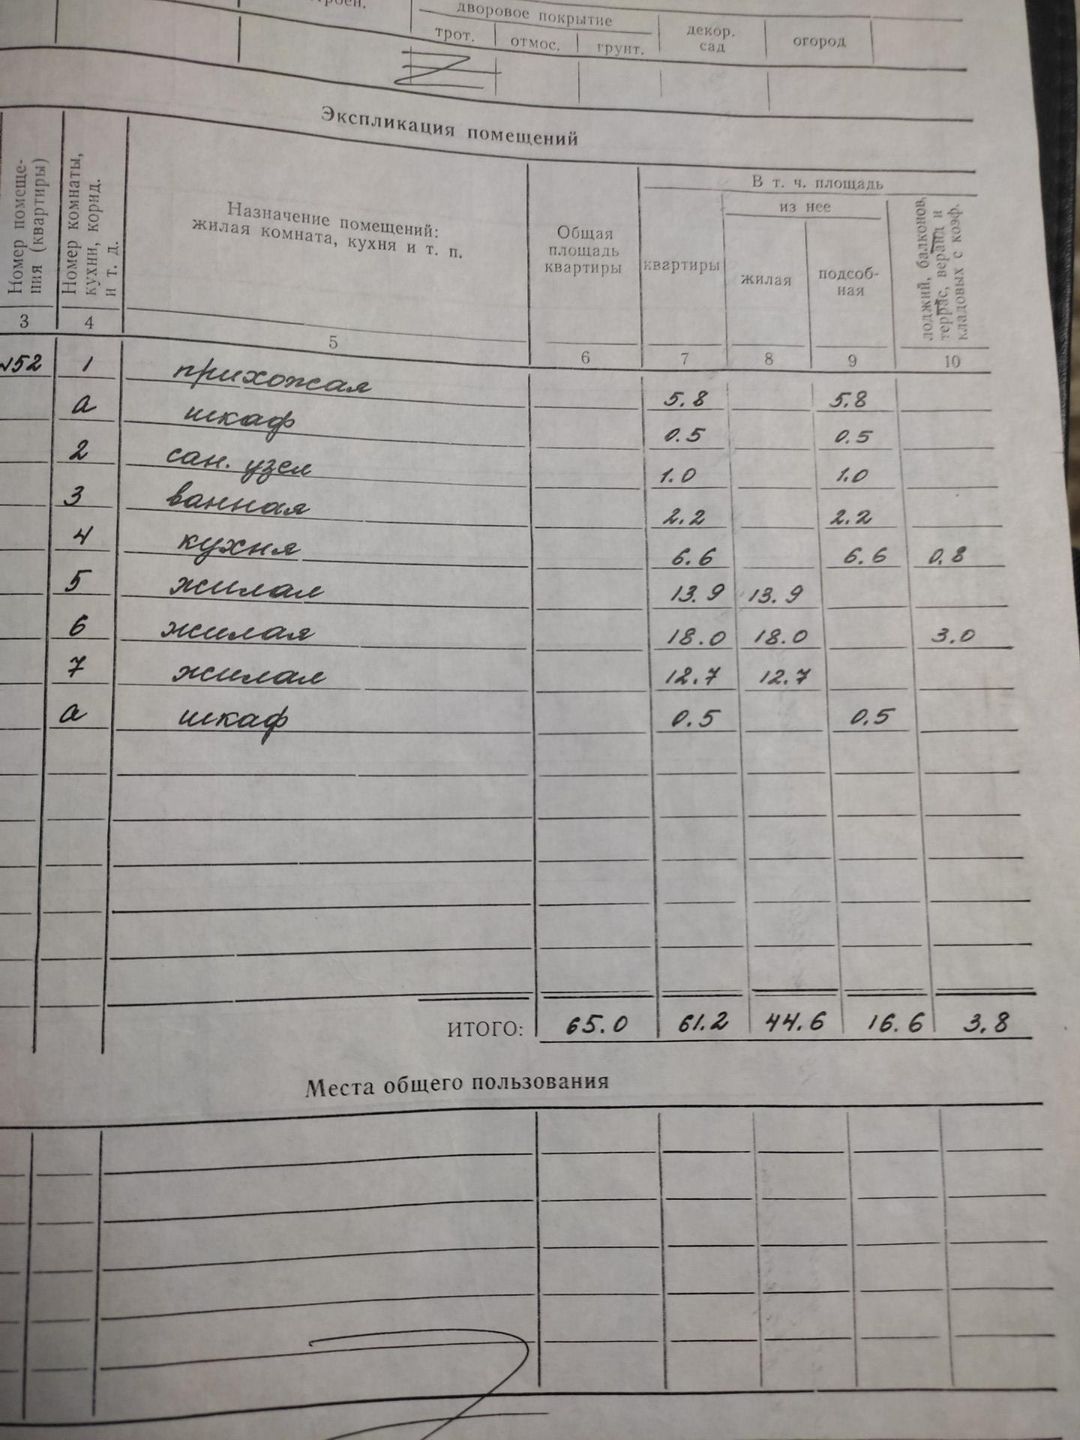 дворовое покрытие
трот. отмос. грунт. декор. сад огород
Экспликация помещений
Номер помеще-
ния (квартиры)
Номер комнаты,
кухни, корид.
и т. д.
Назначение помещений:
жилая комната, кухня и т. п.
Общая
площадь
квартиры
В т. ч. площадь
из нее
квартиры
жилая
подсоб-
ная
лоджий, балконов,
террас, веранд и
кладовых с коэф.
3 4 5 6 7 8 9 10
№52 1 прихожая 5.8 5.8
а шкаф 0.5 0.5
2 сан. узел 1.0 1.0
3 ванная 2.2 2.2
4 кухня 6.6 6.6 0.8
5 жилая 13.9 13.9
6 жилая 18.0 18.0 3.0
7 жилая 12.7 12.7
а шкаф 0.5 0.5
ИТОГО: 65.0 61.2 44.6 16.6 3.8
Места общего пользования